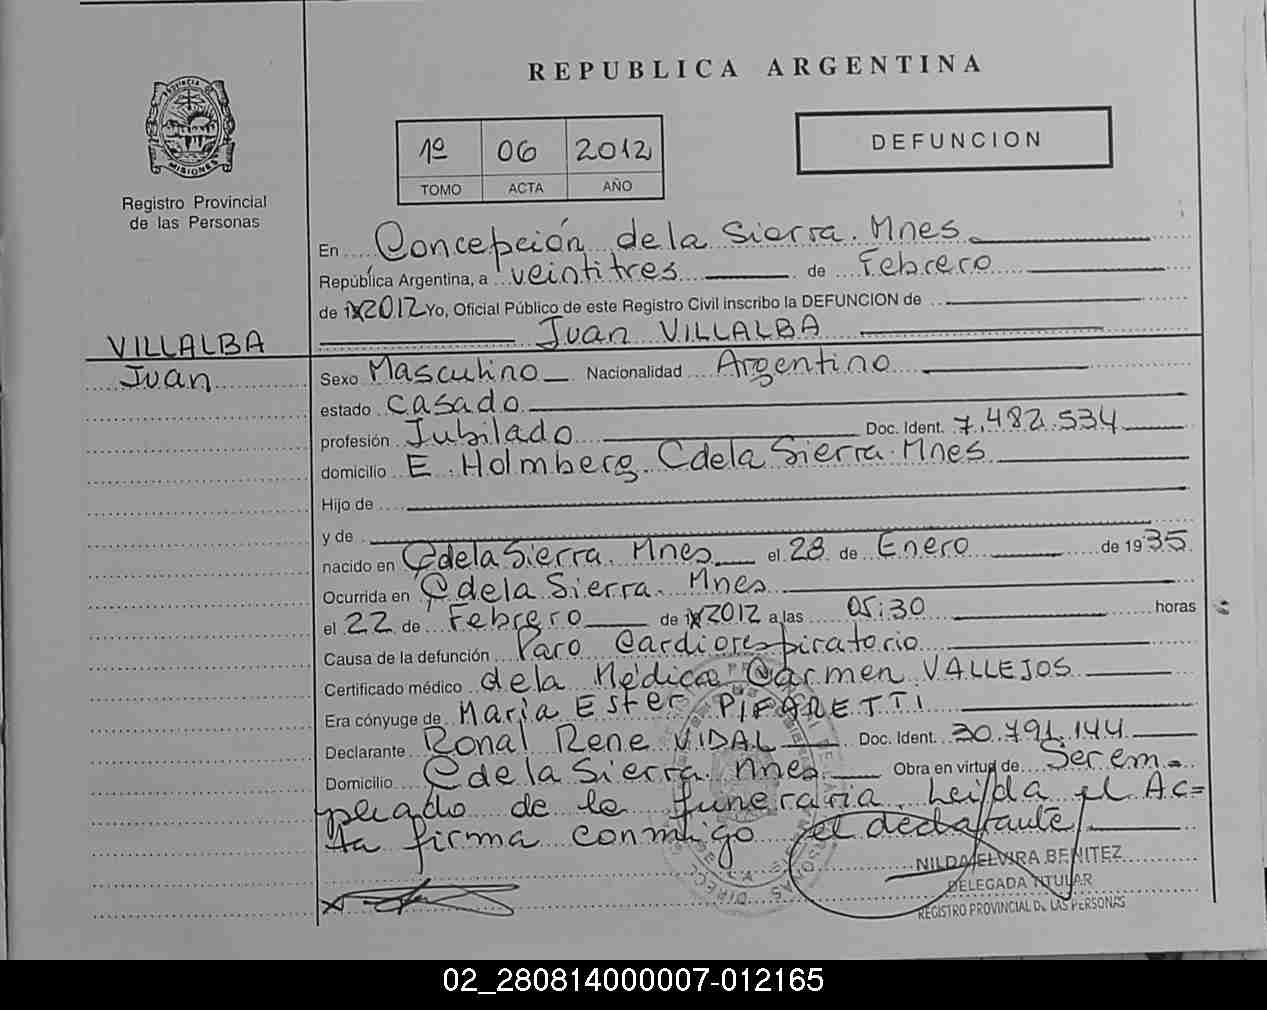 REPUBLICA ARGENTINA
PROVINCIA DE
MISIONES
Registro Provincial
de las Personas
1º 06 2012
TOMO ACTA AÑO
DEFUNCION
En Concepción de la Sierra. Mnes
República Argentina, a veintitres de Febrero
de 19 2012 Yo, Oficial Público de este Registro Civil inscribo la DEFUNCION de
Juan VILLALBA
VILLALBA
Juan
Sexo Masculino Nacionalidad Argentino
estado Casado
profesión Jubilado Doc. Ident. 7.482.534
domicilio E. Holmberg. C de la Sierra. Mnes
Hijo de
y de
nacido en C de la Sierra. Mnes el 28 de Enero de 1935
Ocurrida en C de la Sierra. Mnes
el 22 de Febrero de 19 2012 a las 05:30 horas
Causa de la defunción Paro Cardiorespiratorio
Certificado médico de la Médica Carmen VALLEJOS
Era cónyuge de María Ester PIFARETTI
Declarante Ronal Rene VIDAL Doc. Ident. 30.791.144
Domicilio C de la Sierra. Mnes Obra en virtud de Ser em-
pleado de la funeraria. Leída el Ac=
ta firma conmigo el declarante
NILDA ELVIRA BENITEZ
DELEGADA TITULAR
REGISTRO PROVINCIAL DE LAS PERSONAS
02_280814000007-012165